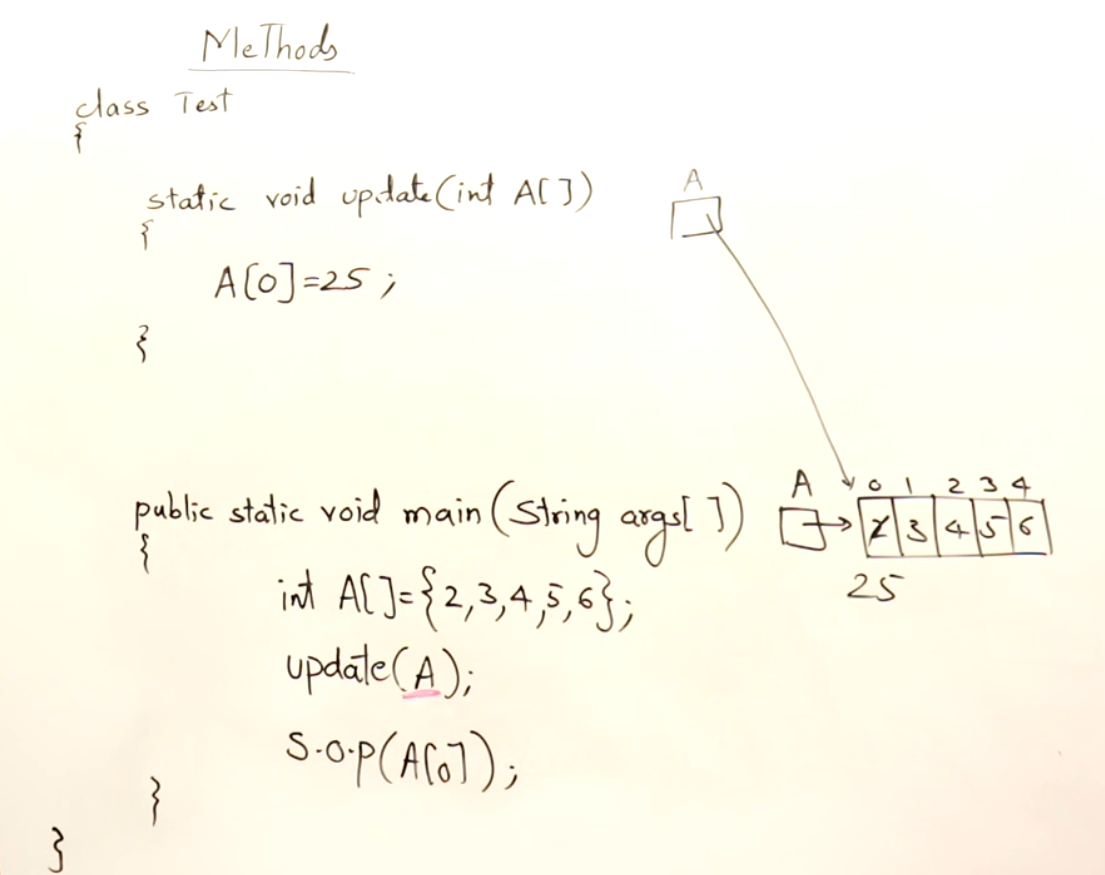 Methods
class Test
{
static void update(int A[])
{
A[0]=25;
}
A
public static void main(String args[])
{
int A[]={2,3,4,5,6};
update(A);
S.o.p(A[0]);
}
}
A 0 1 2 3 4
2 3 4 5 6
25